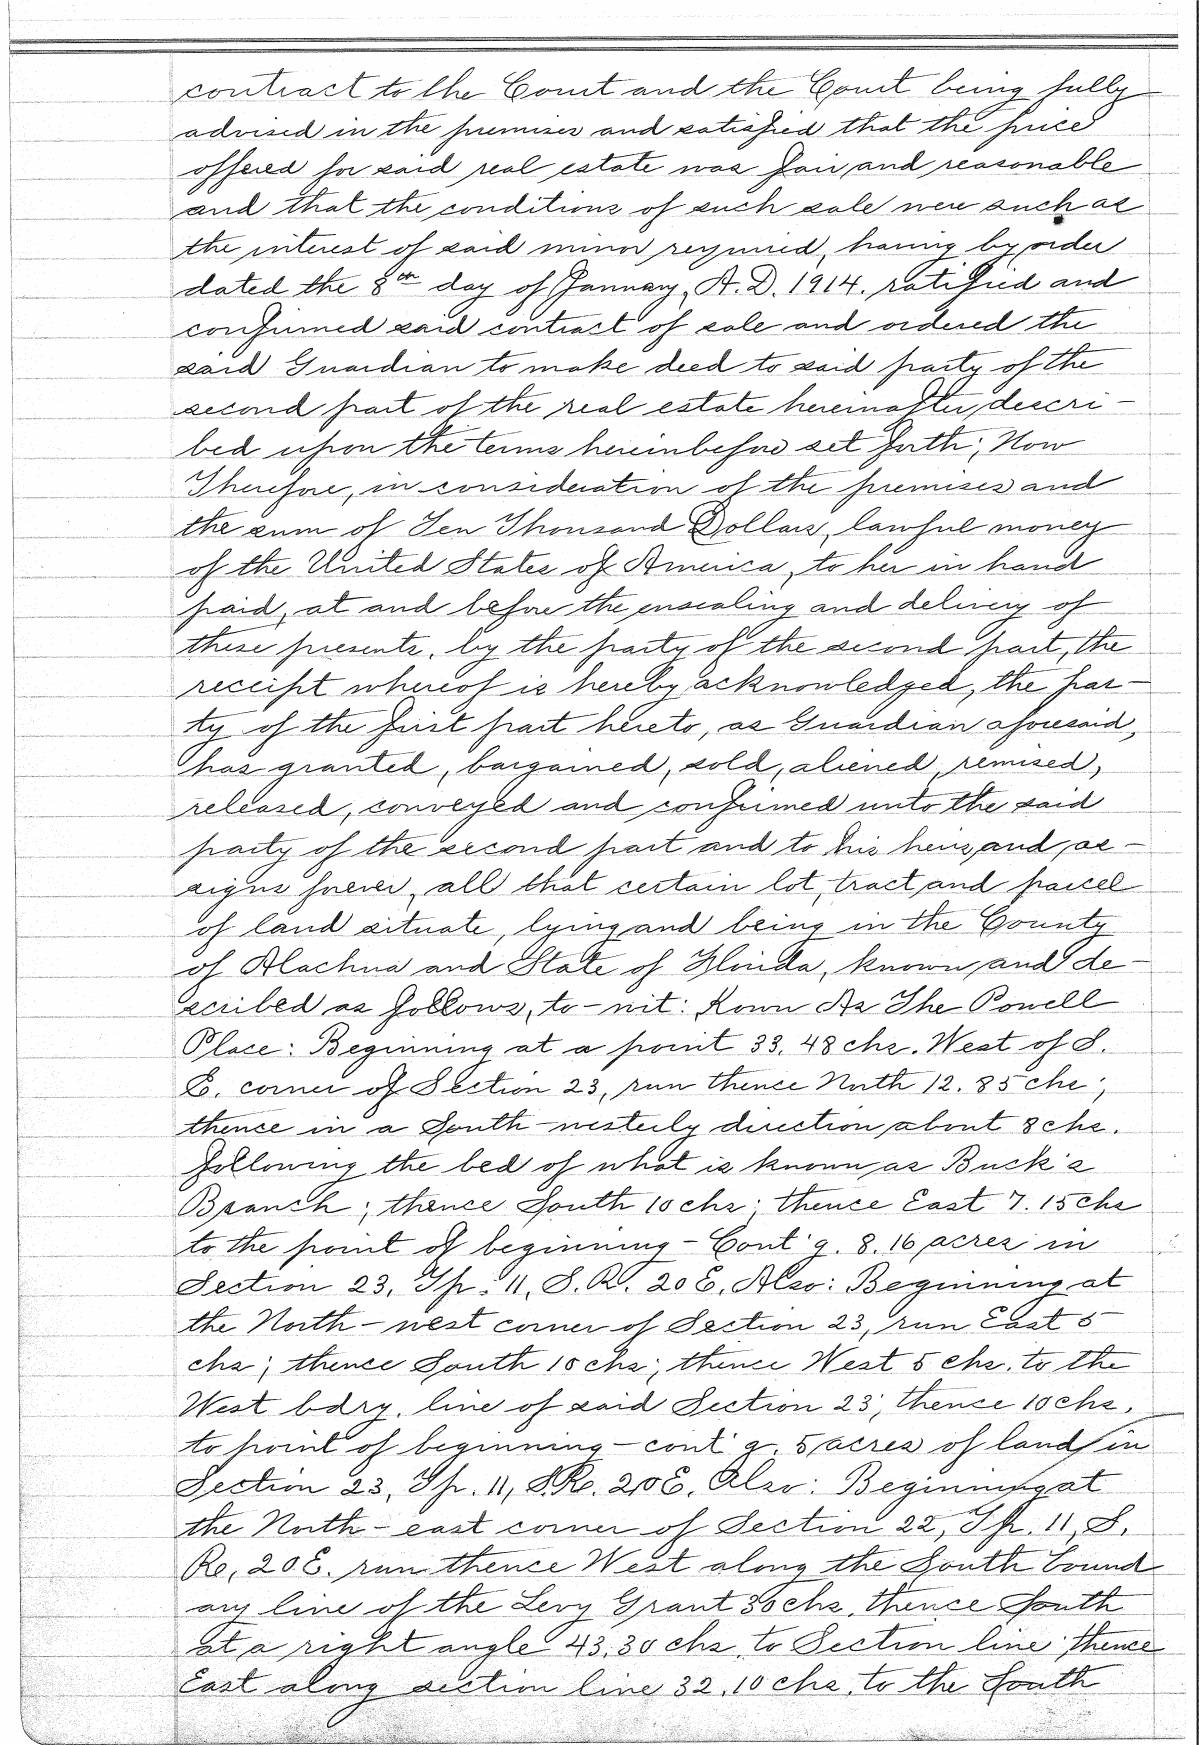 contract to the Court and the Court being fully
advised in the premises and satisfied that the price
offered for said real estate was fair and reasonable
and that the conditions of such sale were such as
the interest of said minor required, having by order
dated the 8th day of January, A.D. 1914. ratified and
confirmed said contract of sale and ordered the
said Guardian to make deed to said party of the
second part of the real estate hereinafter descri-
bed upon the terms hereinbefore set forth; Now
Therefore, in consideration of the premises and
the sum of Ten Thousand Dollars, lawful money
of the United States of America, to her in hand
paid, at and before the ensealing and delivery of
these presents, by the party of the second part, the
receipt whereof is hereby acknowledged, the par-
ty of the first part hereto, as Guardian aforesaid,
has granted, bargained, sold, aliened, remised,
released, conveyed and confirmed unto the said
party of the second part and to his heirs and as-
signs forever, all that certain lot, tract and parcel
of land situate, lying and being in the County
of Alachua and State of Florida, known and de-
scribed as follows, to-wit: Kown As The Powell
Place: Beginning at a point 33.48 chs. West of S.
E. corner of Section 23, run thence North 12.85 chs;
thence in a South-westerly direction about 8 chs.
following the bed of what is known as Buck's
Branch; thence South 10 chs; thence East 7.15 chs
to the point of beginning - Cont'g. 8.16 acres in
Section 23, Tp. 11, S.R. 20 E. Also: Beginning at
the North-west corner of Section 23, run East 5
chs; thence South 10 chs; thence West 5 chs. to the
West bdry. line of said Section 23; thence 10 chs.
to point of beginning - cont'g. 5 acres of land in
Section 23, Tp. 11, S.R. 20 E. Also: Beginning at
the North-east corner of Section 22, Tp. 11, S.
R. 20 E. run thence West along the South bound
ary line of the Levy Grant 30 chs. thence South
at a right angle 43.30 chs. to Section line; thence
East along section line 32.10 chs. to the South